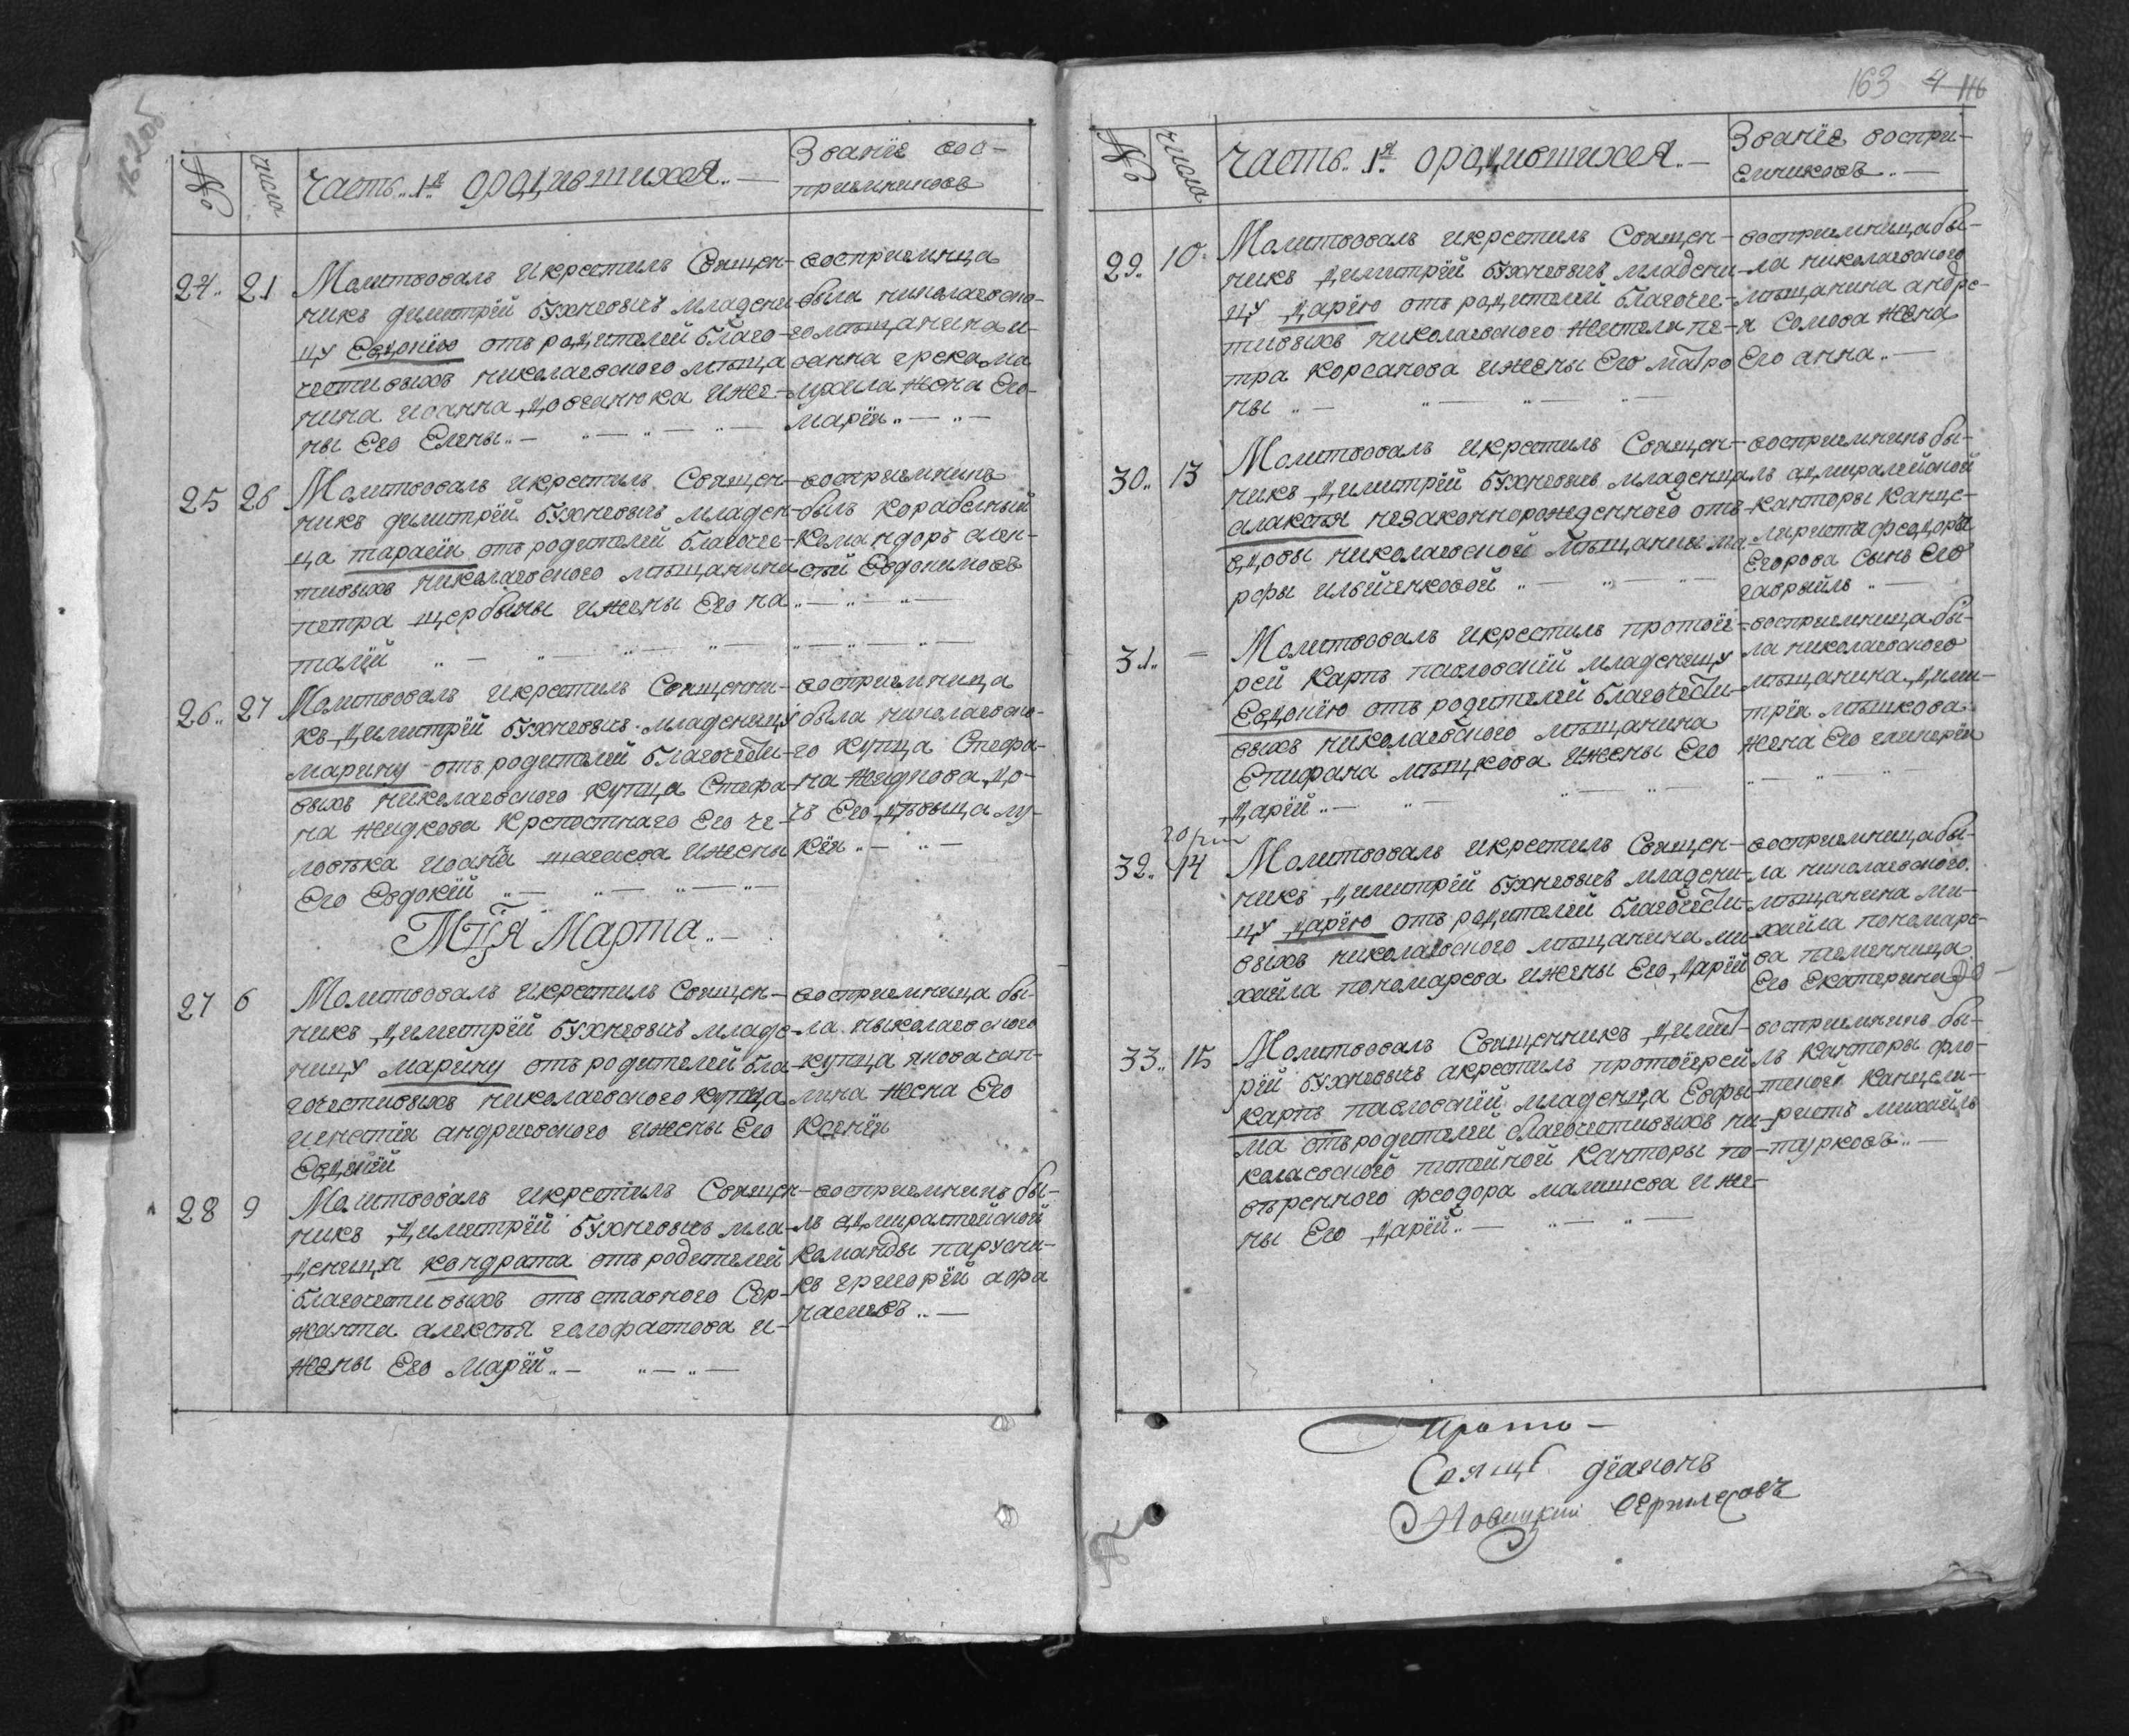 162об
№
число
Часть „1я ородившихся „—
Званїе вос-
приемниковъ
24„ 21
Молитвовалъ икрестилъ Священ-
никъ димитрїй бухневичъ младени
цу Евдокїю отъ родителей благо-
честивыхъ николаевского мѣща
нина иоанна довганюка иже-
ны Его Елены „—
восприемница
была николаевско-
го мѣщанина и-
оанна грека ми
хаила жена Его
марїя „—„—
25 26
Молитвовалъ икрестилъ Священ-
никъ димитрїй бухневичъ младен-
ца тарасїя отъ родителей благоче-
тивыхъ николаевского мѣщанина
петра щербины ижены Его на
талїй „—
восприемникъ
былъ корабелный
командоръ алек-
сѣй Евдокимовъ
26„ 27
Молитвовалъ икрестилъ Священни-
къ Димитрїй бухневичъ младеницу
марину отъ родителей благочести-
выхъ николаевского купца Стефа-
на жидкова крепостнаго Его че-
ловѣка иоана щагаева ижены
Его Евдокїй „—
восприемница
была николаевско-
го купца Стефа-
на жидкова до-
чь Его дѣвица лу-
кїя „—„—
Мцїя Марта „—
27 6
Молитвовалъ икрестилъ Священ-
никъ Димитрїй бухневичъ младе-
ницу марину отъ родителей бла-
гочестивыхъ николаевского купца
игнатїя андриевского ижены Его
Евдокїй
восприемница бы-
ла николаевского
купца якова чап-
лина жена Его
Ксенїя
28 9
Молитвовалъ икрестилъ Священ-
никъ Димитрїй бухневичъ мла-
денца кондрата отъ родителей
благочестивыхъ отъставного Сер-
жанта алексѣя голофастова и-
жены Его Марїй „—
восприемникъ бы-
лъ адмиралтейской
команды парусни-
къ григорїй афа
насиевъ „—
163 4 116
№
числа
Часть „1я„ ородившихся „—
Званїе воспри-
емниковъ „—
29„ 10„
Молитвовалъ икрестилъ Священ-
никъ Димитрїй бухневичъ младени-
цу Дарїю отъ родителей благочес-
тивыхъ николаевского жителя пе-
тра корсакова ижены Его матро
ны „—
восприемница бы-
ла николаевского
мѣщанина андре-
я Сомова жена
Его анна „—
30„ 13
Молитвовалъ икрестилъ Священ-
никъ Димитрїй бухневичъ младенца
алаксѣя незаконнорожденного отъ
вдовы николаевской мѣщанки ма-
рфы ильйченковой „—
восприемникъ бы-
лъ адмиралтейской
канторы канце-
лириста феодора
Егорова Сынъ Его
гаврыйлъ „—
31„ —
Молитвовалъ икрестилъ протоїе-
рей карпъ павловскїй младеницу
Евдокїю отъ родителей благочести-
выхъ николаевского мѣщанина
Епифана мѣшкова ижены Его
Дарїй „—
восприемница бы-
ла николаевского
мѣщанина Дими-
трїя мѣшкова
жена Его гликерїя
32„ 14
Молитвовалъ икрестилъ Священ-
никъ Димитрїй бухневичъ младени-
цу Дарїю отъ родителей благочести-
выхъ николаевского мѣщанина ми-
хайла пономарева ижены Его Дарїй
восприемница бы-
ла николаевского
мѣщанина ми-
хайла пономаре-
ва племенница
Его Екатерина
33„ 15
Молитвовалъ Священникъ Димит-
рїй бухневичъ акрестилъ протоїерей
Карпъ павловскїй младенца Ефи-
ма отъ родителей благочестивыхъ ни-
колаевской питейной канторы по-
вѣренного феодора малишева и же-
ны Его Дарїй „—
восприемникъ бы-
лъ канторы фло-
тской канцеля-
ристъ михаилъ
турковъ „—
Прото-
Свящ. дїаконъ
Новицкїй